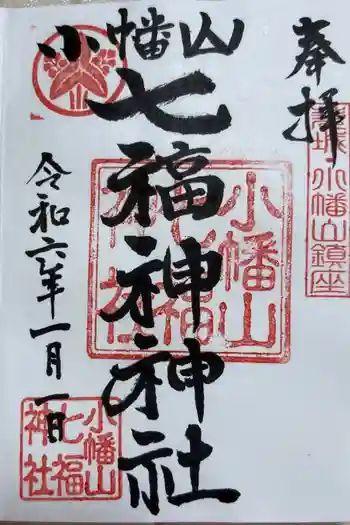 奉拝
茨城 小幡山鎮座
小幡山
七福神神社
小幡山
七福神
神社
令和六年一月一日
小幡山
七福
神社